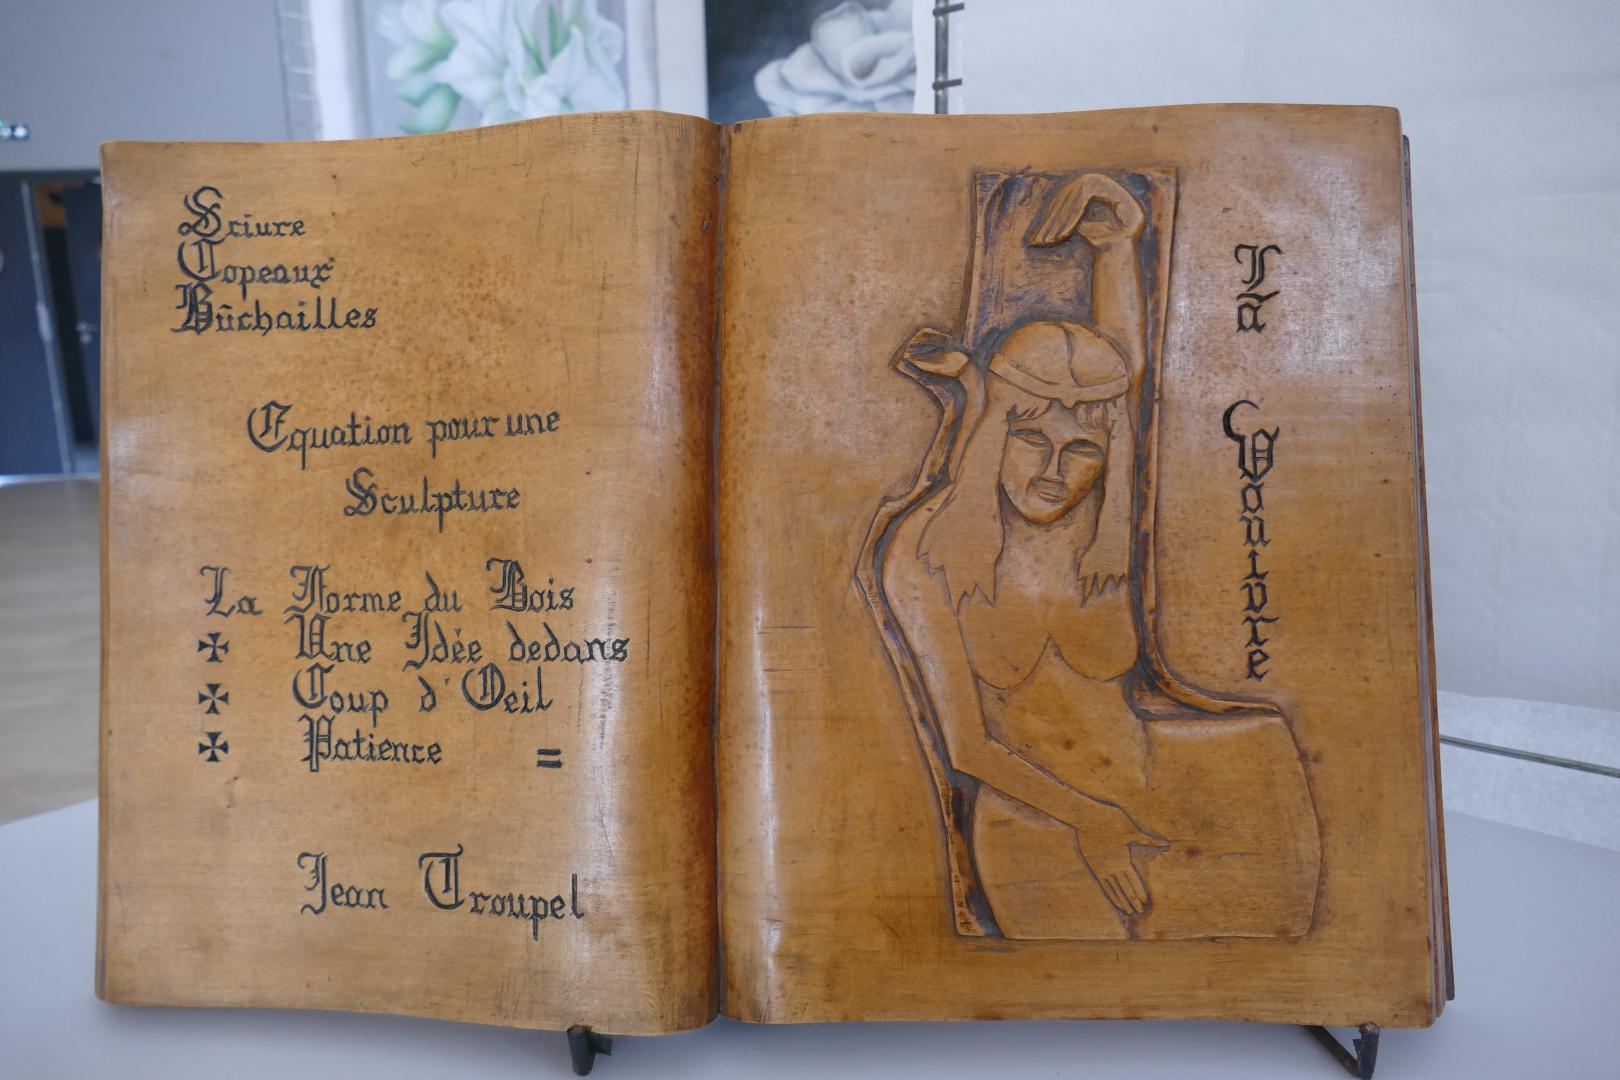 Sciure
Copeaux
Bûchailles
Equation pour une
Sculpture
La Forme du Bois
✠ Une Idée dedans
✠ Coup d'Oeil
✠ Patience =
Jean Troupel
La
Vouivre